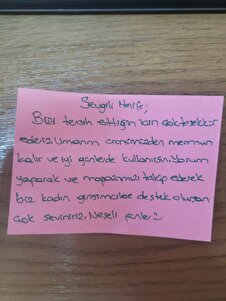 Sevgili Hanife;
Bizi tercih ettiğin için çok teşekkür
ederiz. Umarım ürünümüzden memnun
kalır ve iyi günlerde kullanırsın. Yorum
yaparak ve mağazamızı takip ederek
biz kadın girişimcilere destek olursan
çok seviniriz. Neşeli günler :)